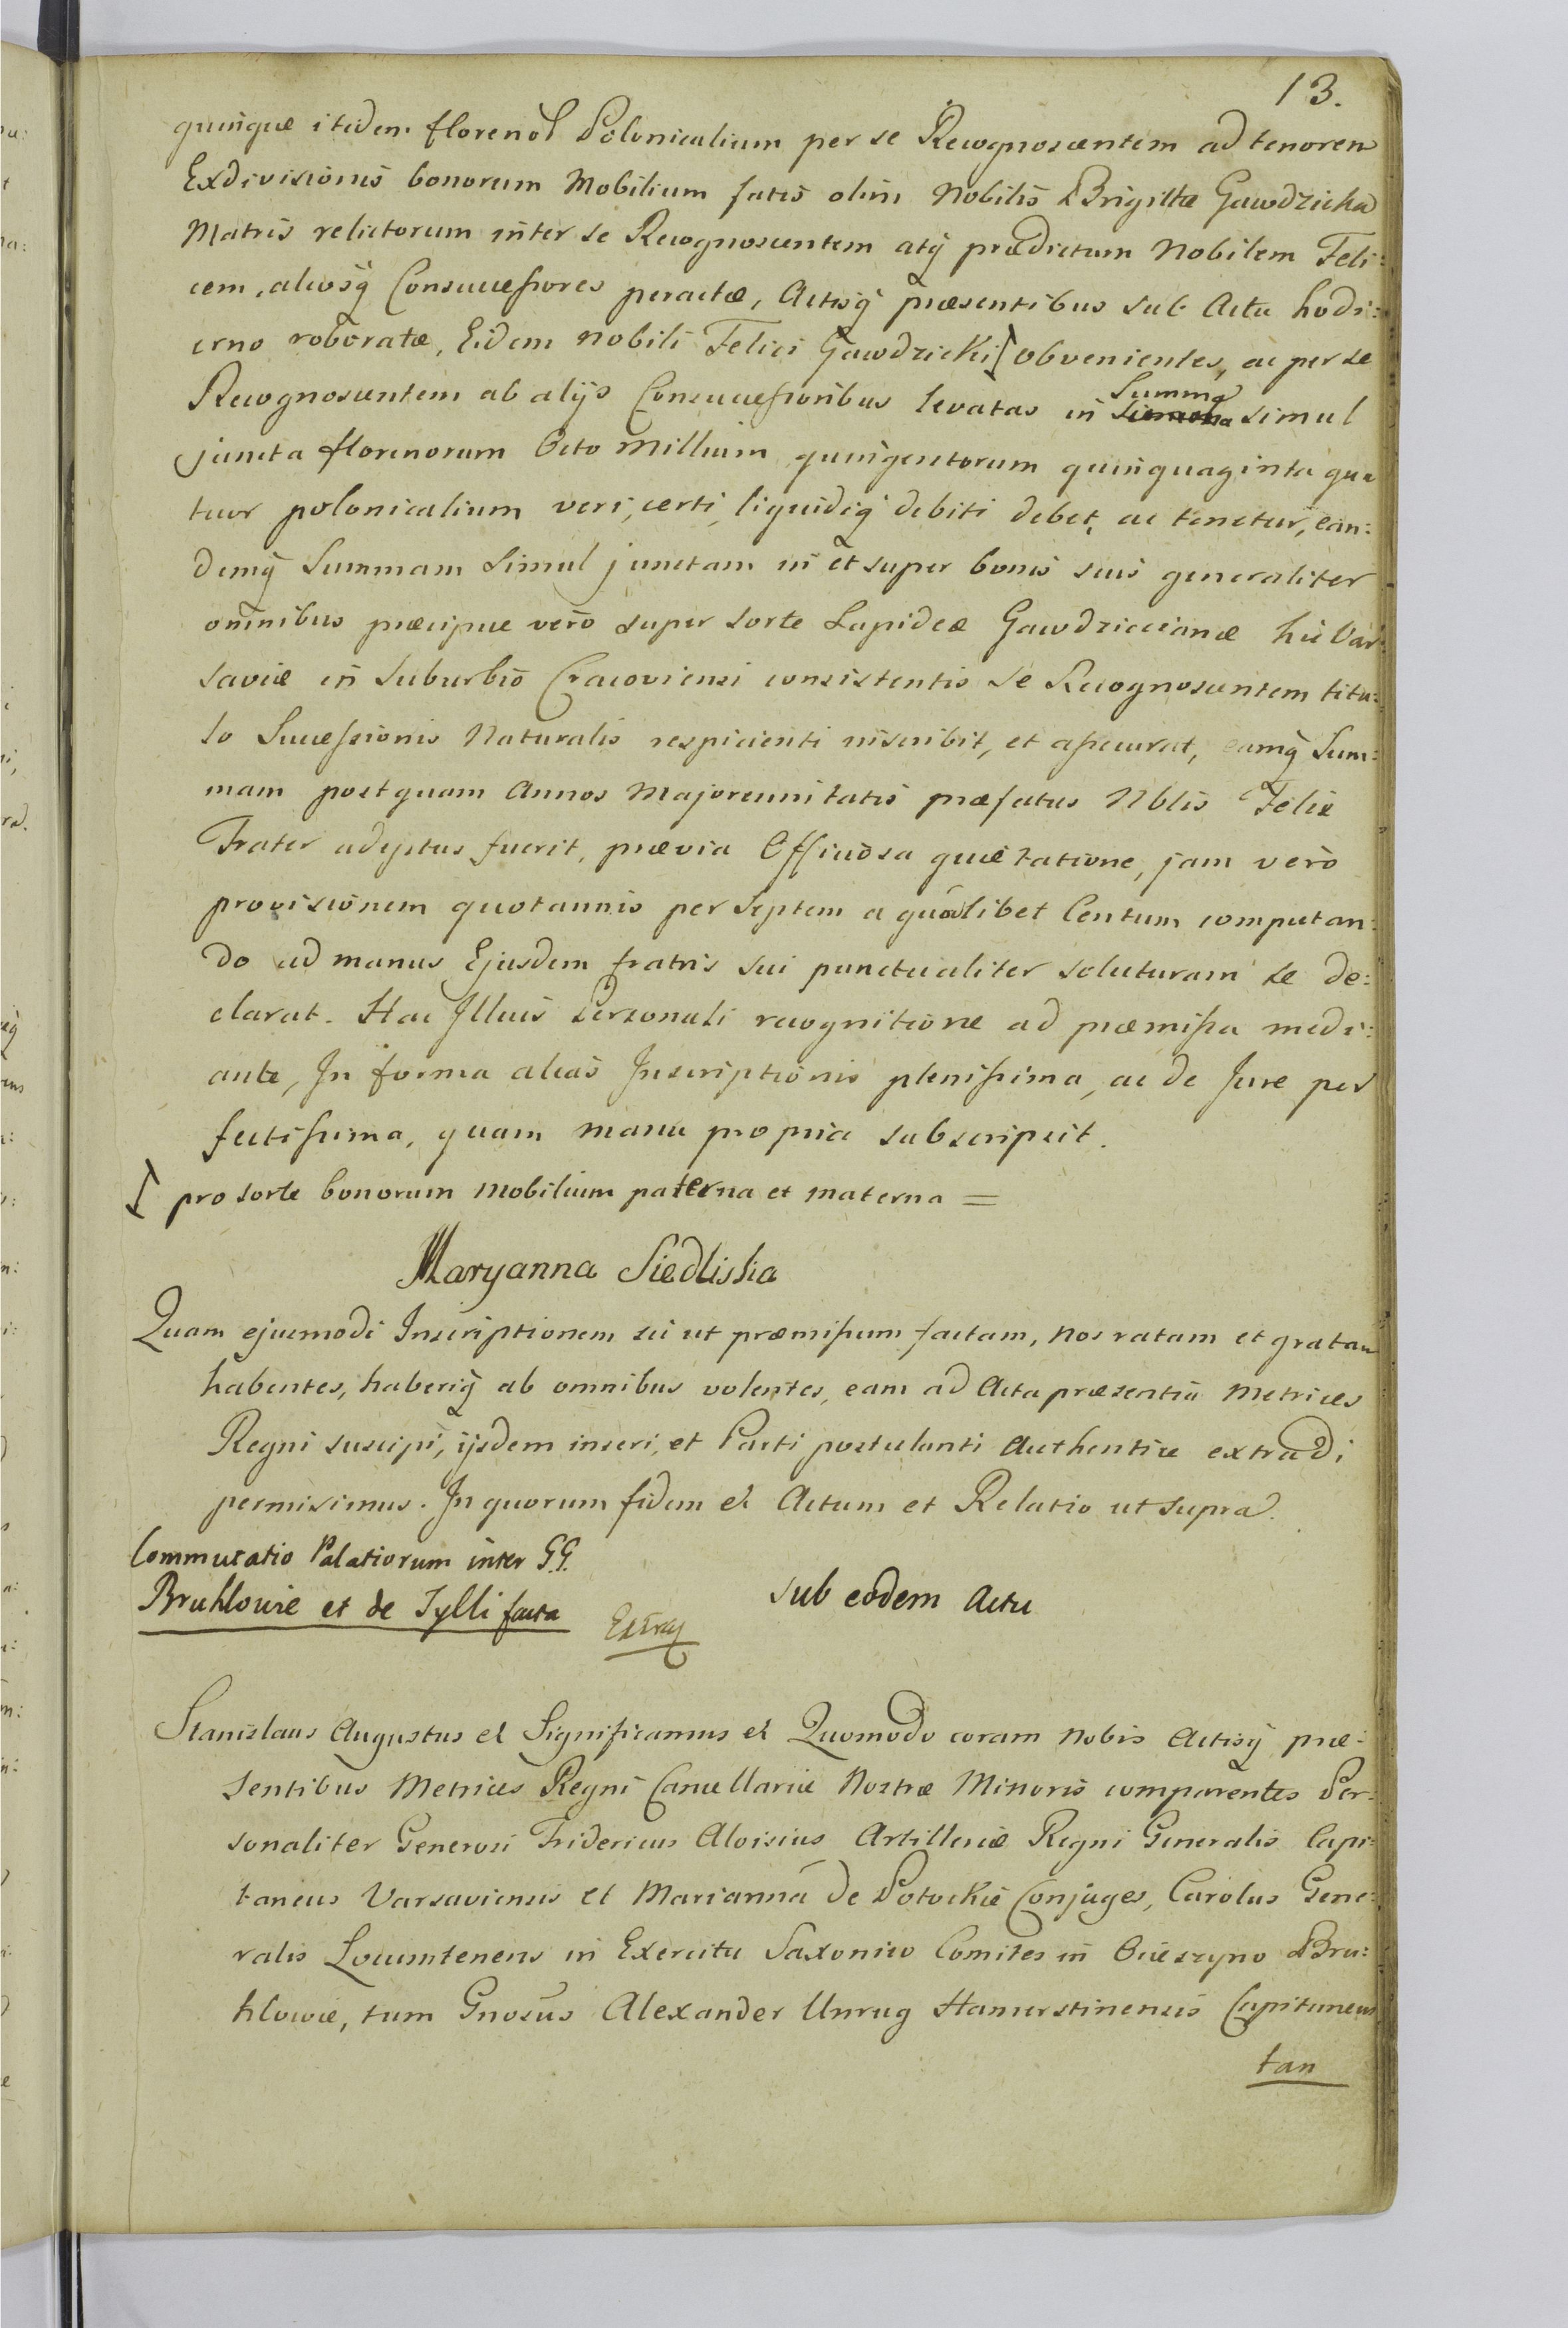 13.
quinque itidem florenos Polonicalium per se Recognoscentem ad tenorem
Exdivisionis bonorum Mobilium fatis olim Nobilis Brigittæ Gawdzicka
Matris relictorum inter se Recognoscentem atq prædictum Nobilem Feli:
cem, aliosq Consuccessores peractæ, Actisq præsentibus sub Actu hodi:
erno roboratæ, Eidem nobili Felici Gawdzicki [ obvenientes, ac per se
Recognoscentem ab alijs Consuccessoribus levatas in Summa simul
juncta florenorum Octo Millium quingentorum quinquaginta qua
tuor polonicalium veri, certi, liquidiq debiti debet, ac tenetur, ean:
demq Summam simul junctam in et super bonis suis generaliter
omnibus præcipue vero super sorte Lapideæ Gawdziccianæ hic Var:
saviæ in Suburbio Cracoviensi consistentis se Recognoscentem titu:
lo Successionis Naturalis respicienti inscribit, et assecurat, eamq Sum:
mam postquam Annos Majorennitatis præfatus Nblis Felix
Frater adeptus fuerit, prævia Officiosa quietatione, jam vero
provisionem quotannis per septem a quolibet Centum computan:
do ad manus Ejusdem fratris sui punctualiter soluturam se de:
clarat. Hac Illius Personali recognitione ad præmissa medi:
ante, In forma alias Inscriptionis plenissima, ac de Jure per
fectissima, quam manu propria subscripsit.
[ pro sorte bonorum mobilium paterna et materna =
Maryanna Siedliska
Quam ejusmodi Inscriptionem sic ut præmissum factam, Nos ratam et gratam
habentes, haberiq ab omnibus volentes, eam ad Acta præsentia Metrices
Regni suscipi, ijsdem inseri, et Parti postulanti Authentice extradi
permisimus. In quorum fidem et Actum et Relatio ut supra.
Commutatio Palatiorum inter G.G.
Bruhlowie et de Tylli facta
sub eodem Actu
Stanislaus Augustus et Significamus et Quomodo coram Nobis Actisq præ:
sentibus Metrices Regni Cancellariæ Nostræ Minoris comparentes Per:
sonaliter Generosi Fridericus Aloisius Artilleriæ Regni Generalis Capi:
taneus Varsaviensis et Marianna de Potockie Conjuges, Carolus Gene:
ralis Locumtenens in Exercitu Saxonico Comites in Ocieszyno Bru:
hlowie, tum Gnosus Alexander Unrug Hamerstinensis Capitaneus
tan